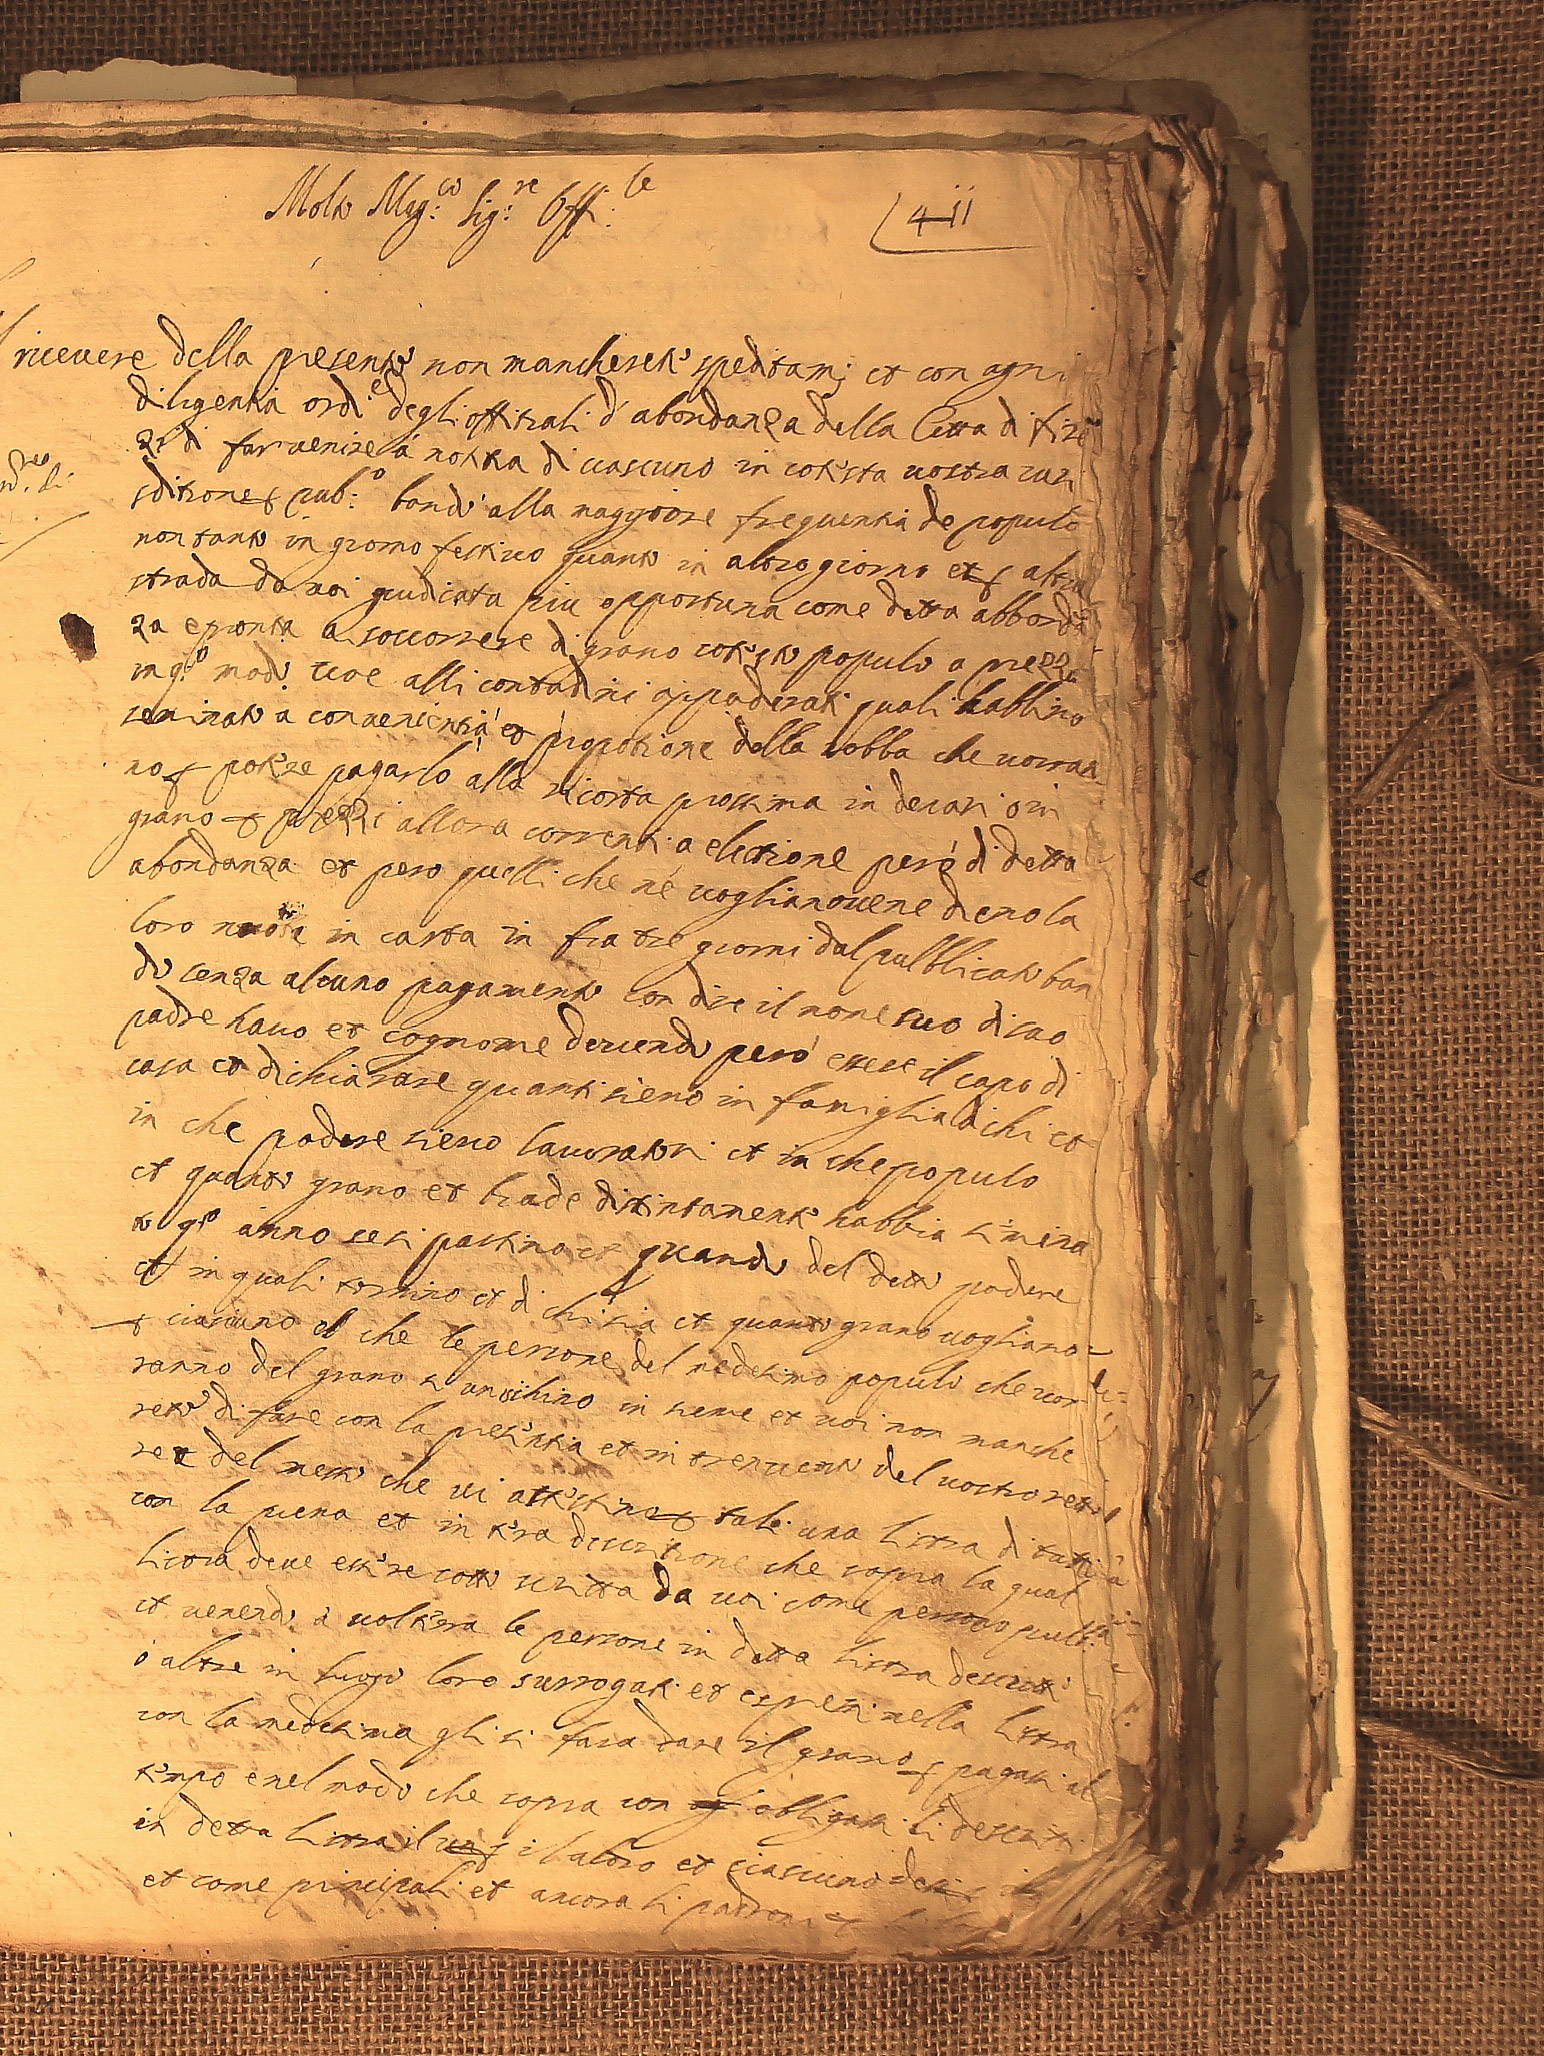 Molto Mag:co Sig:re Off:le
411
ricevere della presente non mancherete speditam: et con ogni
diligentia ordi.e degli offitiali d'abondanza della Citta di Fire
ze di far venire à notitia di ciascuno in cotesta vostra iuri
sditione pub:o bando alla maggiore frequentia de populo
non tanto in giorno festivo quanto in altro giorno et altra
strada da voi giudicata piu opportuna come detta abbonda
za e pronta a soccorrere di grano cotesto populo a prezzo
in q.o modo cioe alli contadini appoderati quali habbino
seminato a convenientia et proportione della robba che vorran
no potere pagarlo alla ricolta prossima in denari o in
grano prezzi allora correnti a eletione però di detta
abondanza et pero quelli che ne voglianovene dieno la
loro in carta in fra tre giorni dal pubblicato ban
do senza alcuno pagamento con dire il nome suo di suo
padre havo et cognome devendo però essere il capo di
casa et dichiarare quanti sieno in famiglia di chi et
in che podere sieno lavoratori et in che populo
et quanto grano et biade distintamente habbia semina
to q.to anno se si partino et quando del detto podere
et in quali tornino et di chi sia et quanto grano vogliano
ciascuno et che le persone del medesimo populo che vor
ranno del grano si unischino in sieme et voi non manche
rete di fare con la presentia et in tervento del vostro retto
re del messo che vi attestino tale una listra di tutti
con la piena et in tera descritione che sopra la qual
listra deve essere sotto scritta da voi come persona publi
et venendo à voltera le persone in detta listra descritte
ò altre in luogo loro surrogati et espressi nella listra
con la medesima gli si fara dare il grano pagarsi al
tempo e nel modo che sopra con obligarsi li descritti
in detta listra il il altro et ciascuno
et come principali et ancora li padroni